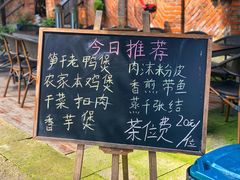 今日推荐
笋干老鸭煲
农家本鸡煲
干菜扣肉
香芋煲
肉沫粉皮
香煎带鱼
蒸千张结
茶位费 20元/位